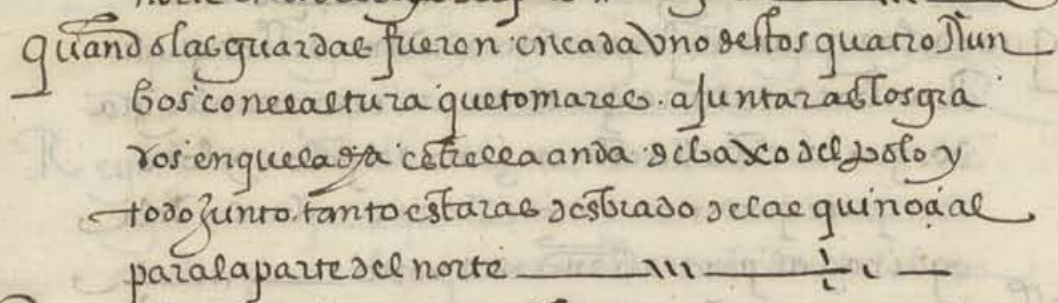 quando las guardas fueron en cada uno destos quatro Run
bos con el altura que tomares. ajuntaras los gra
dos en que la dha estrella anda debaxo del polo y
todo junto. tanto estaras desbiado de la equinoçial
para la parte del norte